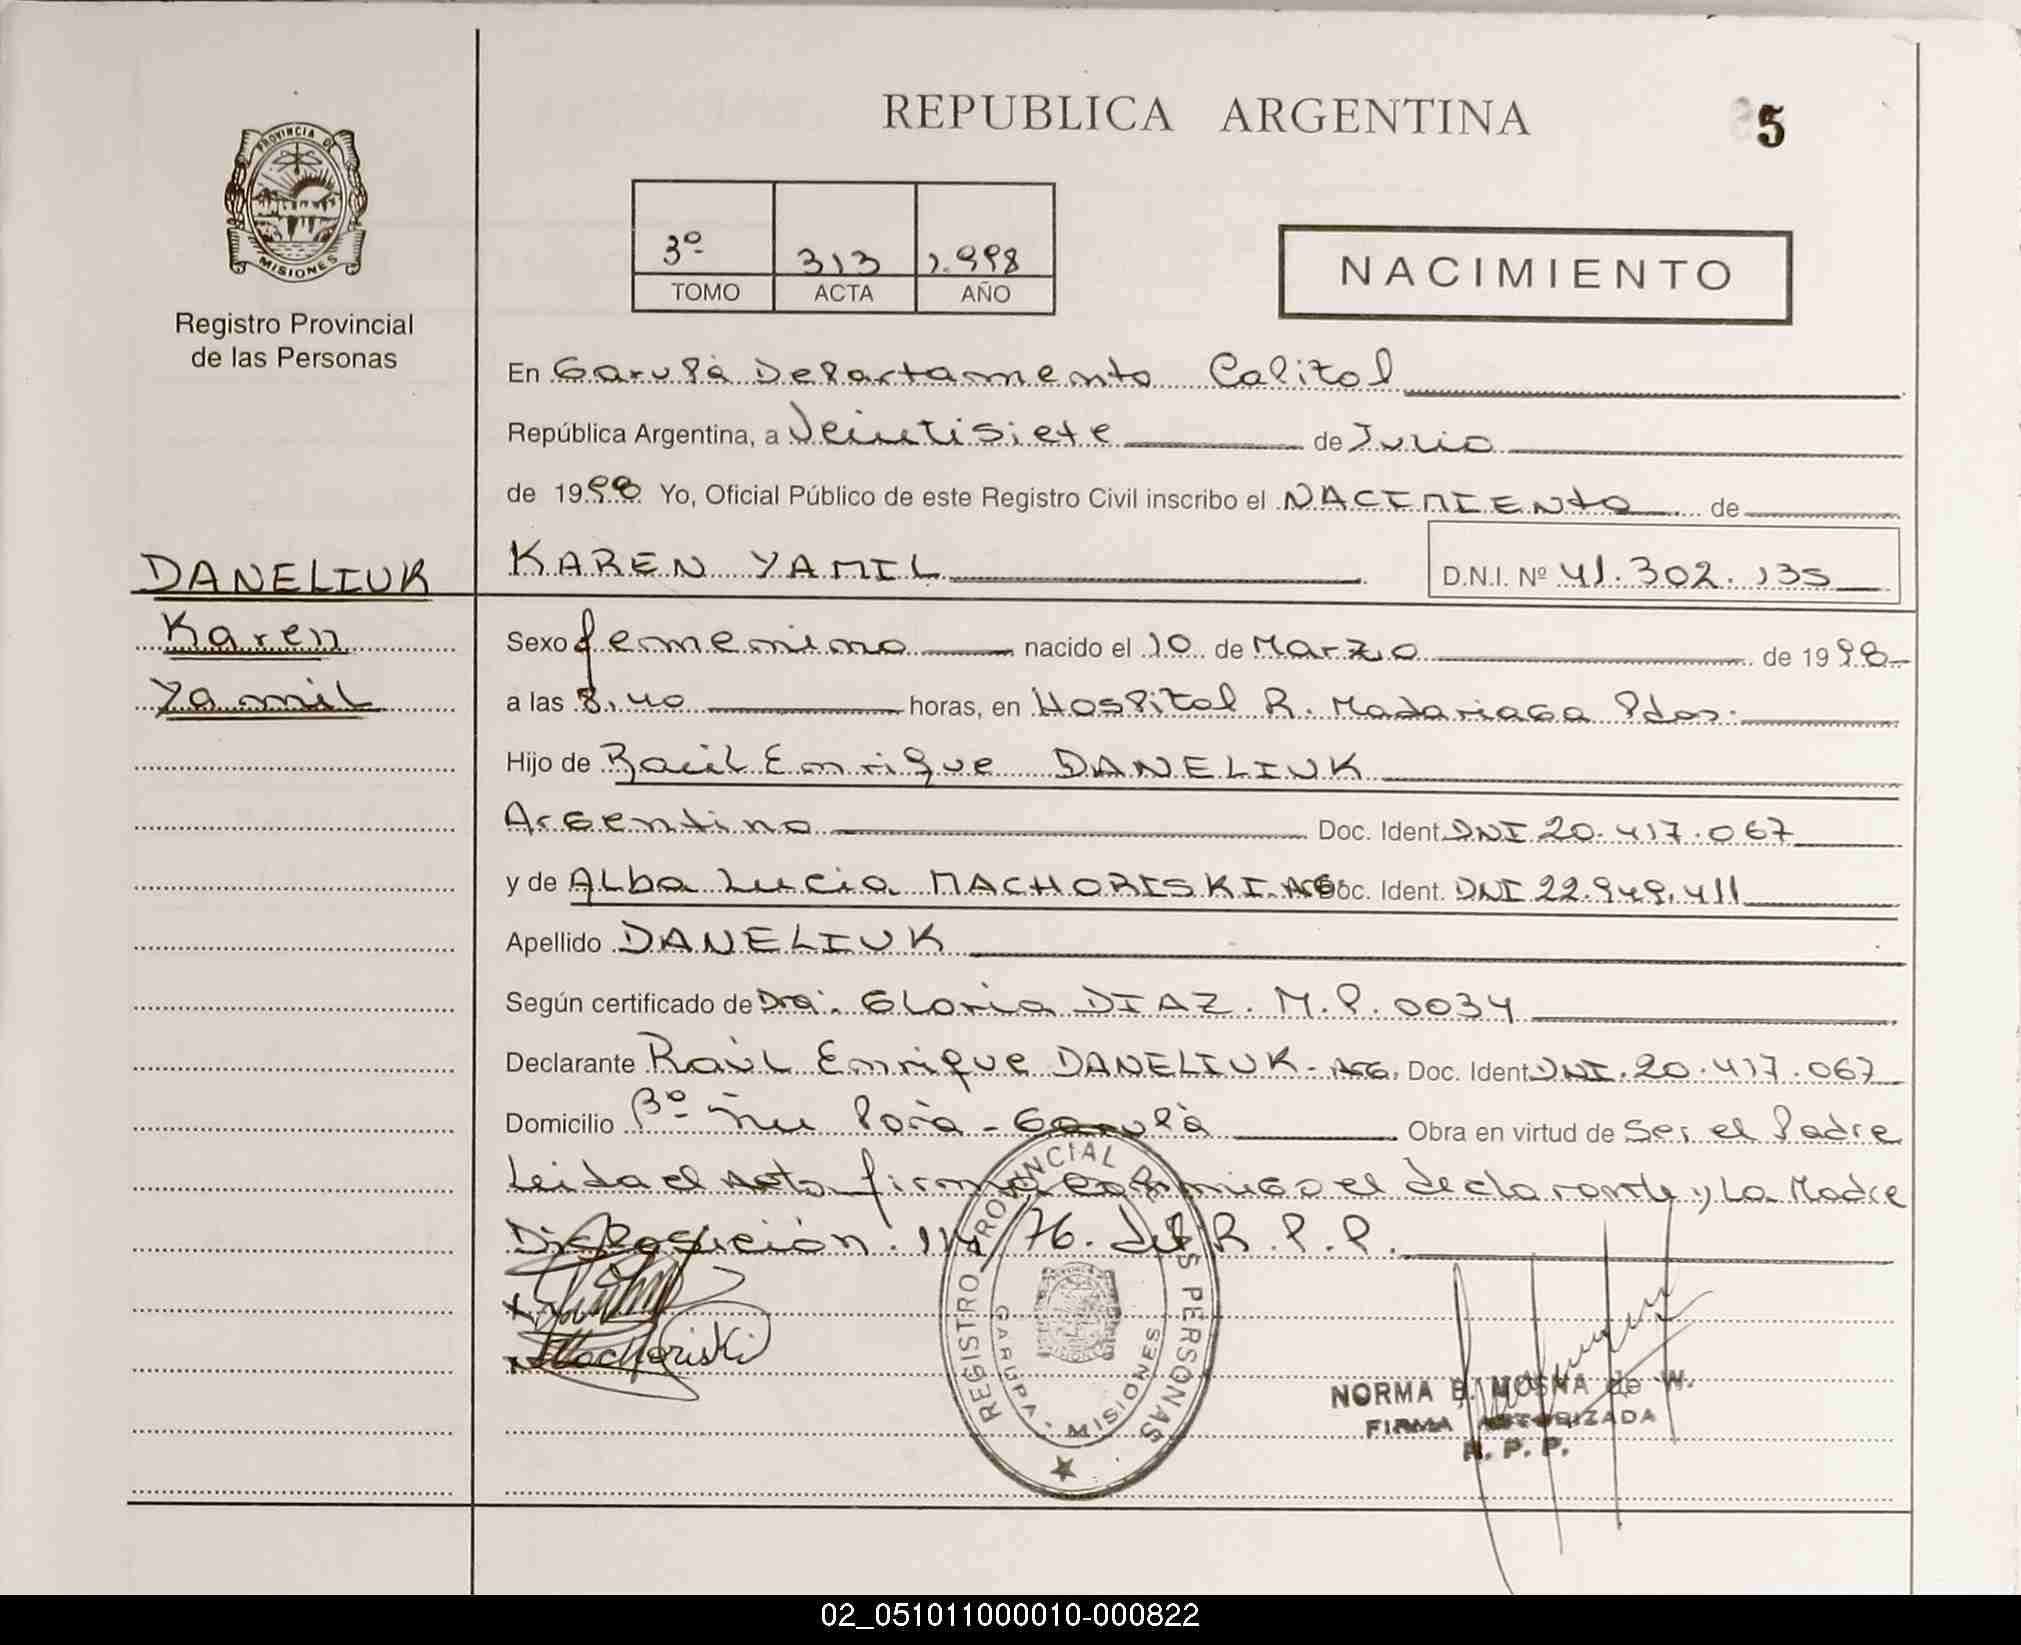 REPUBLICA ARGENTINA
5
PROVINCIA DE
MISIONES
Registro Provincial
de las Personas
3º 313 1.998
TOMO ACTA AÑO
NACIMIENTO
En Garupá Departamento Capital
República Argentina, a Veintisiete de Julio
de 1998 Yo, Oficial Público de este Registro Civil inscribo el NACIMIENTO de
KAREN YAMIL D.N.I. Nº 41.302.135
DANELIUK
Karen
Yamil
Sexo femenino nacido el 10 de Marzo de 1998
a las 8,40 horas, en Hospital R. Madariaga Pdas.
Hijo de Raúl Enrique DANELIUK
Argentino Doc. Ident. DNI 20.417.067
y de Alba Lucia MACHORISKI. Arg. Doc. Ident. DNI 22.949.411
Apellido DANELIUK
Según certificado de Dra. Gloria DIAZ. M.P. 0034
Declarante Raúl Enrique DANELIUK - Arg. Doc. Ident. DNI. 20.417.067
Domicilio Bº Ñu Porá - Garupá Obra en virtud de Ser el Padre
Leida el Acta firma conmigo el declarante y La Madre
Disposición 114/76. del R.P.P.
x
x Machoriski
REGISTRO PROVINCIAL DE LAS PERSONAS
GARUPA - MISIONES
NORMA B. MOSNA de W.
FIRMA AUTORIZADA
R. P. P.
02_051011000010-000822